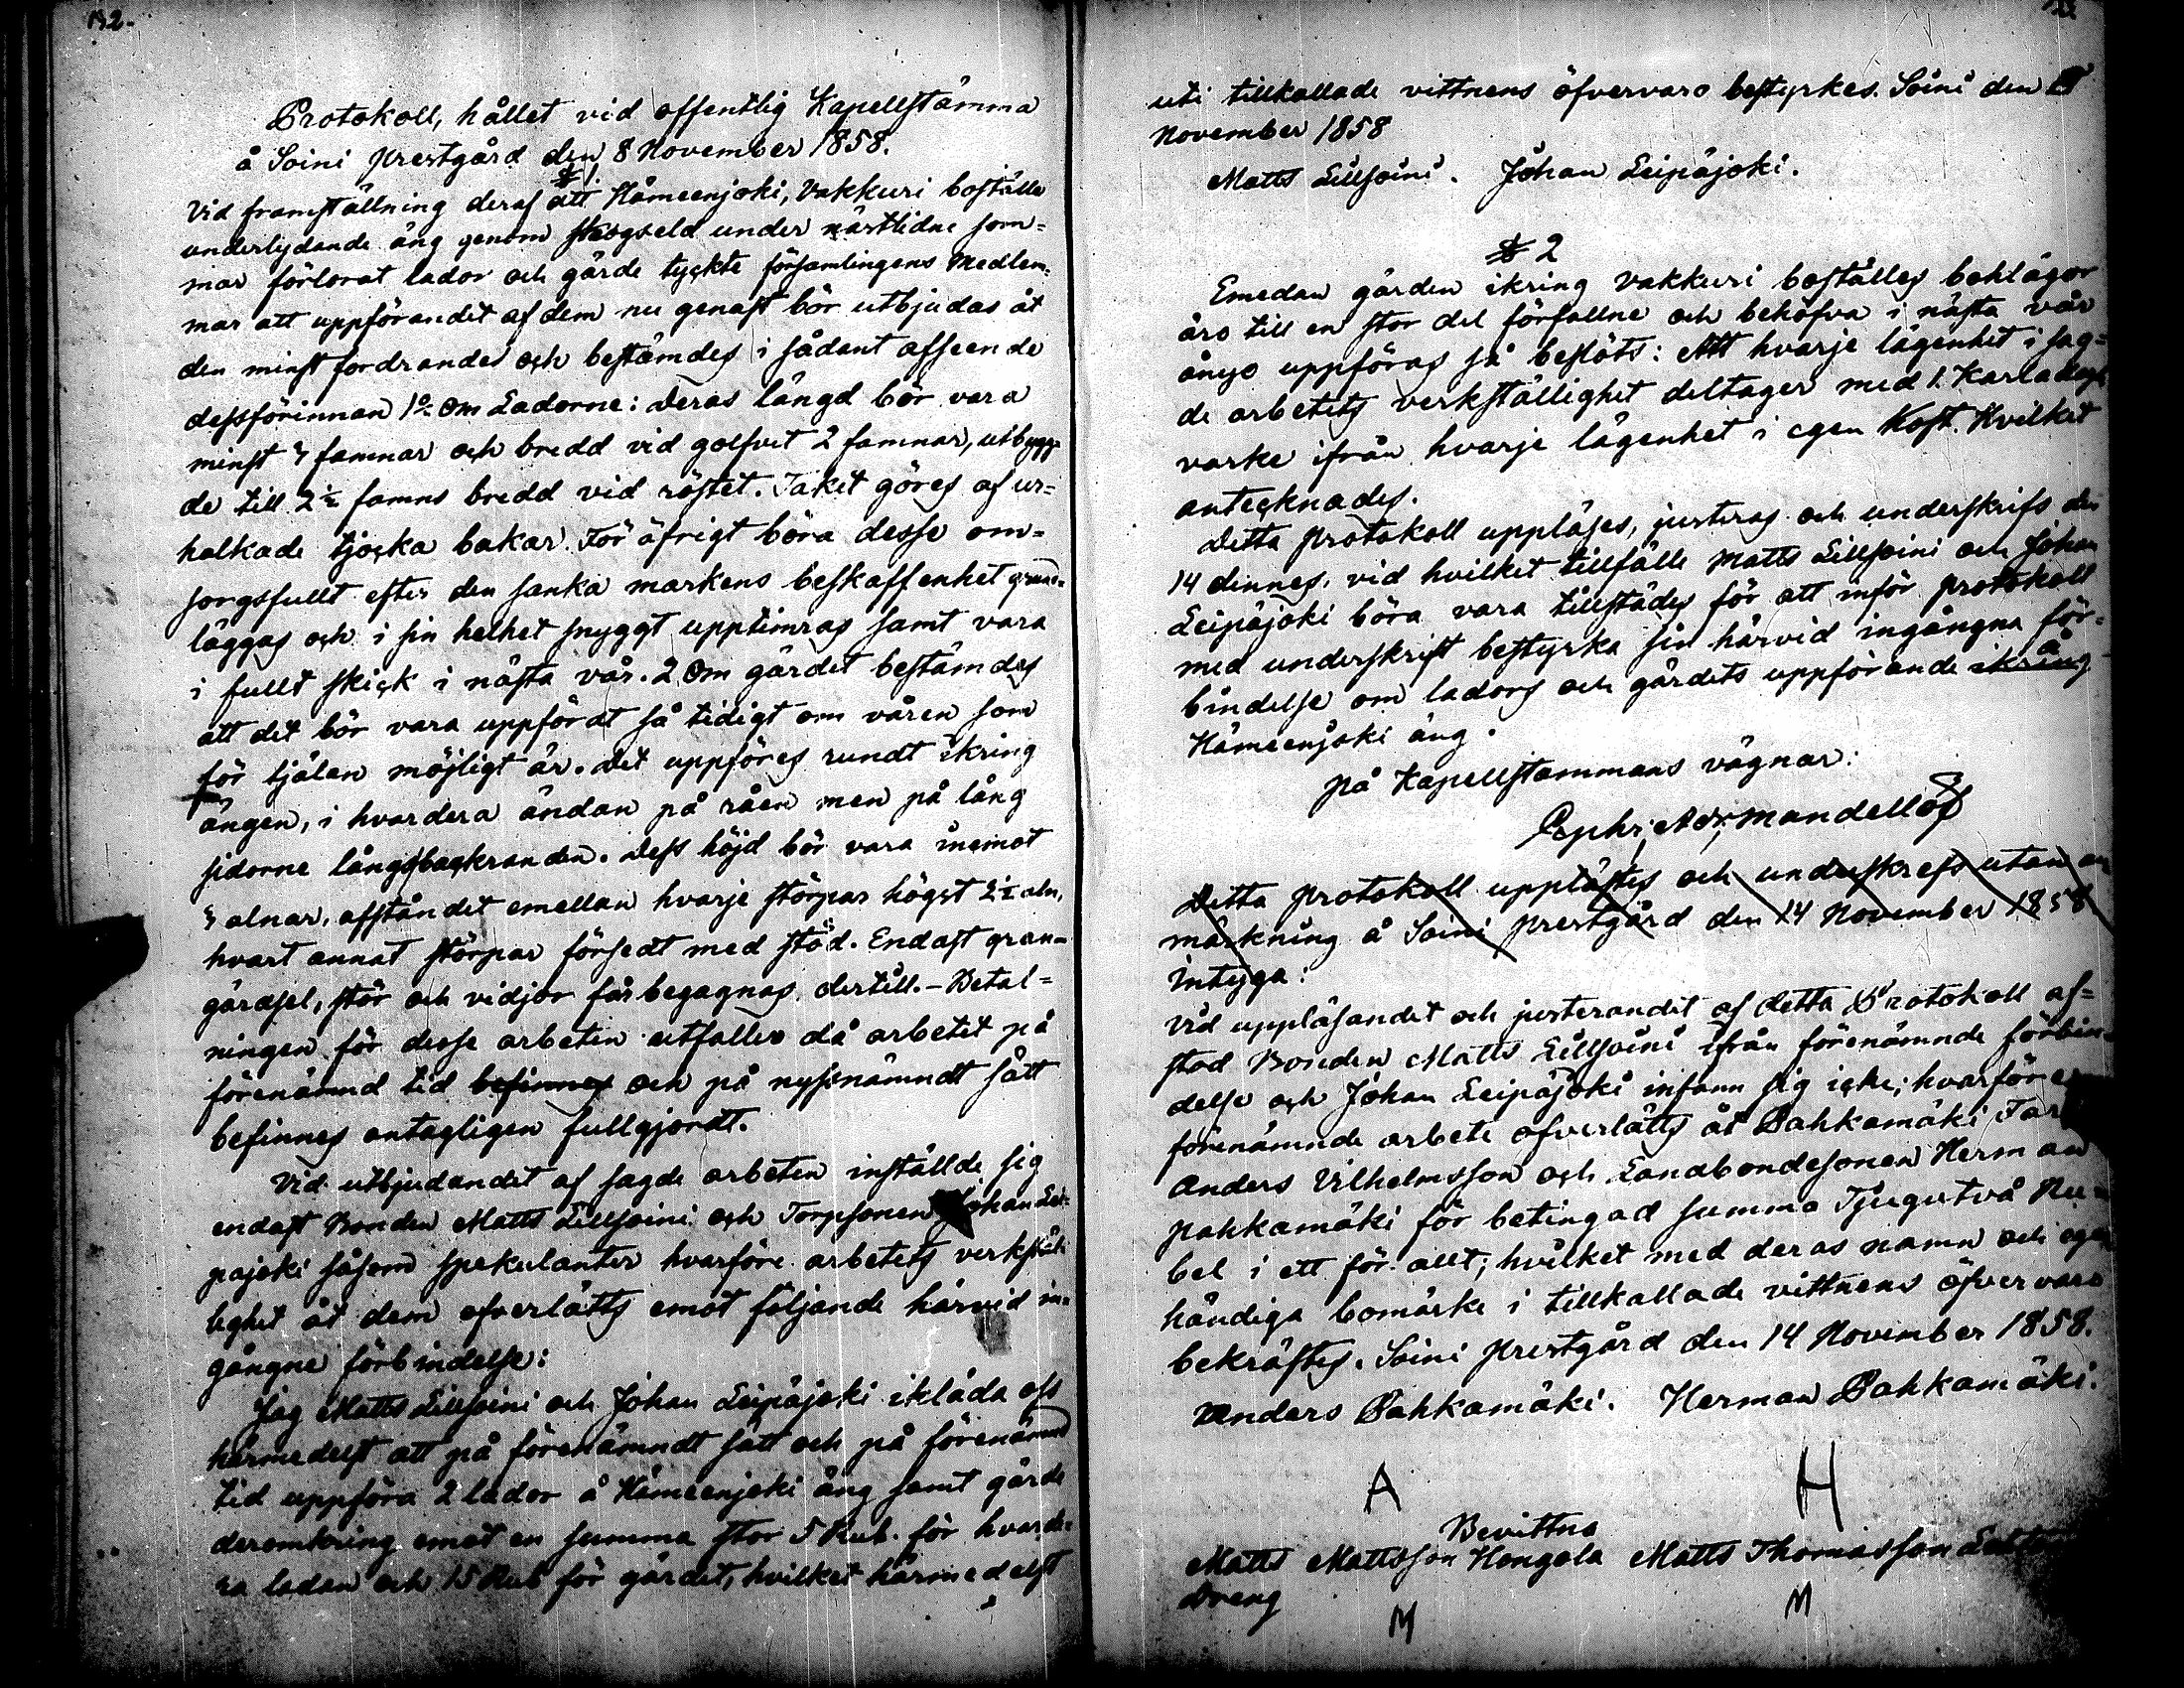 132.
Protokoll, hållet vid offentlig Kapellstämma
å Soini prestgård den 8 November 1858.
§ 1.
Vid framställning deraf att Hämeenjoki, Vakkuri boställe
underlydande äng genom skogseld under nästlidne som=
mar förlorat lador och gärde tyckte församlingens Medlem=
mar att uppförandet af dem nu genast bör utbjudas åt
den minst fordrande och bestämdes i sådant afseende
dessförinnan 1o Om Ladorne: Deras längd bör vara
minst 3 famnar och bredd vid golfvet 2 famnar, utbygg=
de till 2½ famns bredd vid röstet. Taket göres af ur=
halkade tjocka bakar. För öfrigt böra desse om=
sorgsfullt efter den sanka markens beskaffenhet grund=
läggas och i sin helhet snyggt upptimras samt vara
i fullt skick i nästa vår. 2 Om gärdet bestämdes
att det bör vara uppfördt så tidigt om våren som
för tjälen möjligt är. Det uppföres rundt ikring
ängen, i hvardera ändan på råen men på lång
sidorne långsbackranden. Dess höjd bör vara inemot
3 alnar, afståndet emellan hvarje störpar högst 2½ aln,
hvart annat störpar försedt med stöd. Endast gran=
gärdsel, stör och vidjor får begagnas dertill. - Betal=
ningen för desse arbeten utfaller då arbetet på
förenämnd tid befinnes och på nyssnämndt sätt
befinnes antagligen fullgjordt.
Vid utbjudandet af sagde arbeten inställde sig
endast Bonden Matts Lillsoini och Torpsonen Johan Lei=
päjoki såsom spekulanter hvarföre arbetets verkstäl=
lighet åt dem öfverläts emot följande härvid in=
gångne förbindelse:
Jag Matts Lillsoini och Johan Leipäjoki ikläda oss
härmedelst att på förenämndt sätt och på förenämnd
tid uppföra 2 lador å Hämeenjoki äng samt gärde
deromkring emot en summa stor 5 Rub. för hvarde=
ra ladan och 15 Rub för gärdet, hvilket härmedelst
uti tillkallade vittnens öfvervaro bestyrkes. Soini den
November 1858
Matts Lillsoini. Johan Leipäjoki.
§ 2
Emedan gärden ikring Vakkuri boställes bohlägor
äro till en stor del förfallne och behöfva i nästa vår
ånyo uppföras så beslöts: Att hvarje lägenhet i sag=
de arbetets verkställighet deltager med 1. Karla dags
varke ifrån hvarje lägenhet i egen Kost. Hvilket
antecknades.
Detta protokoll uppläses, justeras och underskrifs den
14 dennes, vid hvilket tillfälle Matts Lillsoini och Johan
Leipäjoki böra vara tillstädes för att inför protokoll
med underskrift bestyrka sin härvid ingångna för=
bindelse om ladors och gärdets uppförande ikring å
Hämeenjoki äng.
På Kapellstämmans vägnar:
Detta protokoll upplästes och underskrefs utan an
märkning å Soini prestgård den 14 November 1858
intyga:
Vid uppläsandet och justerandet af detta Protokoll af=
stod Bonden Matts Lillsoini ifrån förenämnde förbin=
delse och Johan Leipäjoki infann sig icke; hvarföre
förenämnde arbete öfverläts åt Pahkamäki
Anders Vilhelmsson och Landbondesonen Herman
Pahkamäki för betingad summa Tjugutvå Ru=
bel i ett för allt; hvilket med deras namn och egen
händiga bomärke i tillkallade vittnens öfvervaro
bekräftes. Soini prestgård den 14 November 1858.
Anders Pahkamäki. Herman Pahkamäki.
A H
Bevittna
Matts Mattsson Hongola Matts Thomasson
Dreng
M M